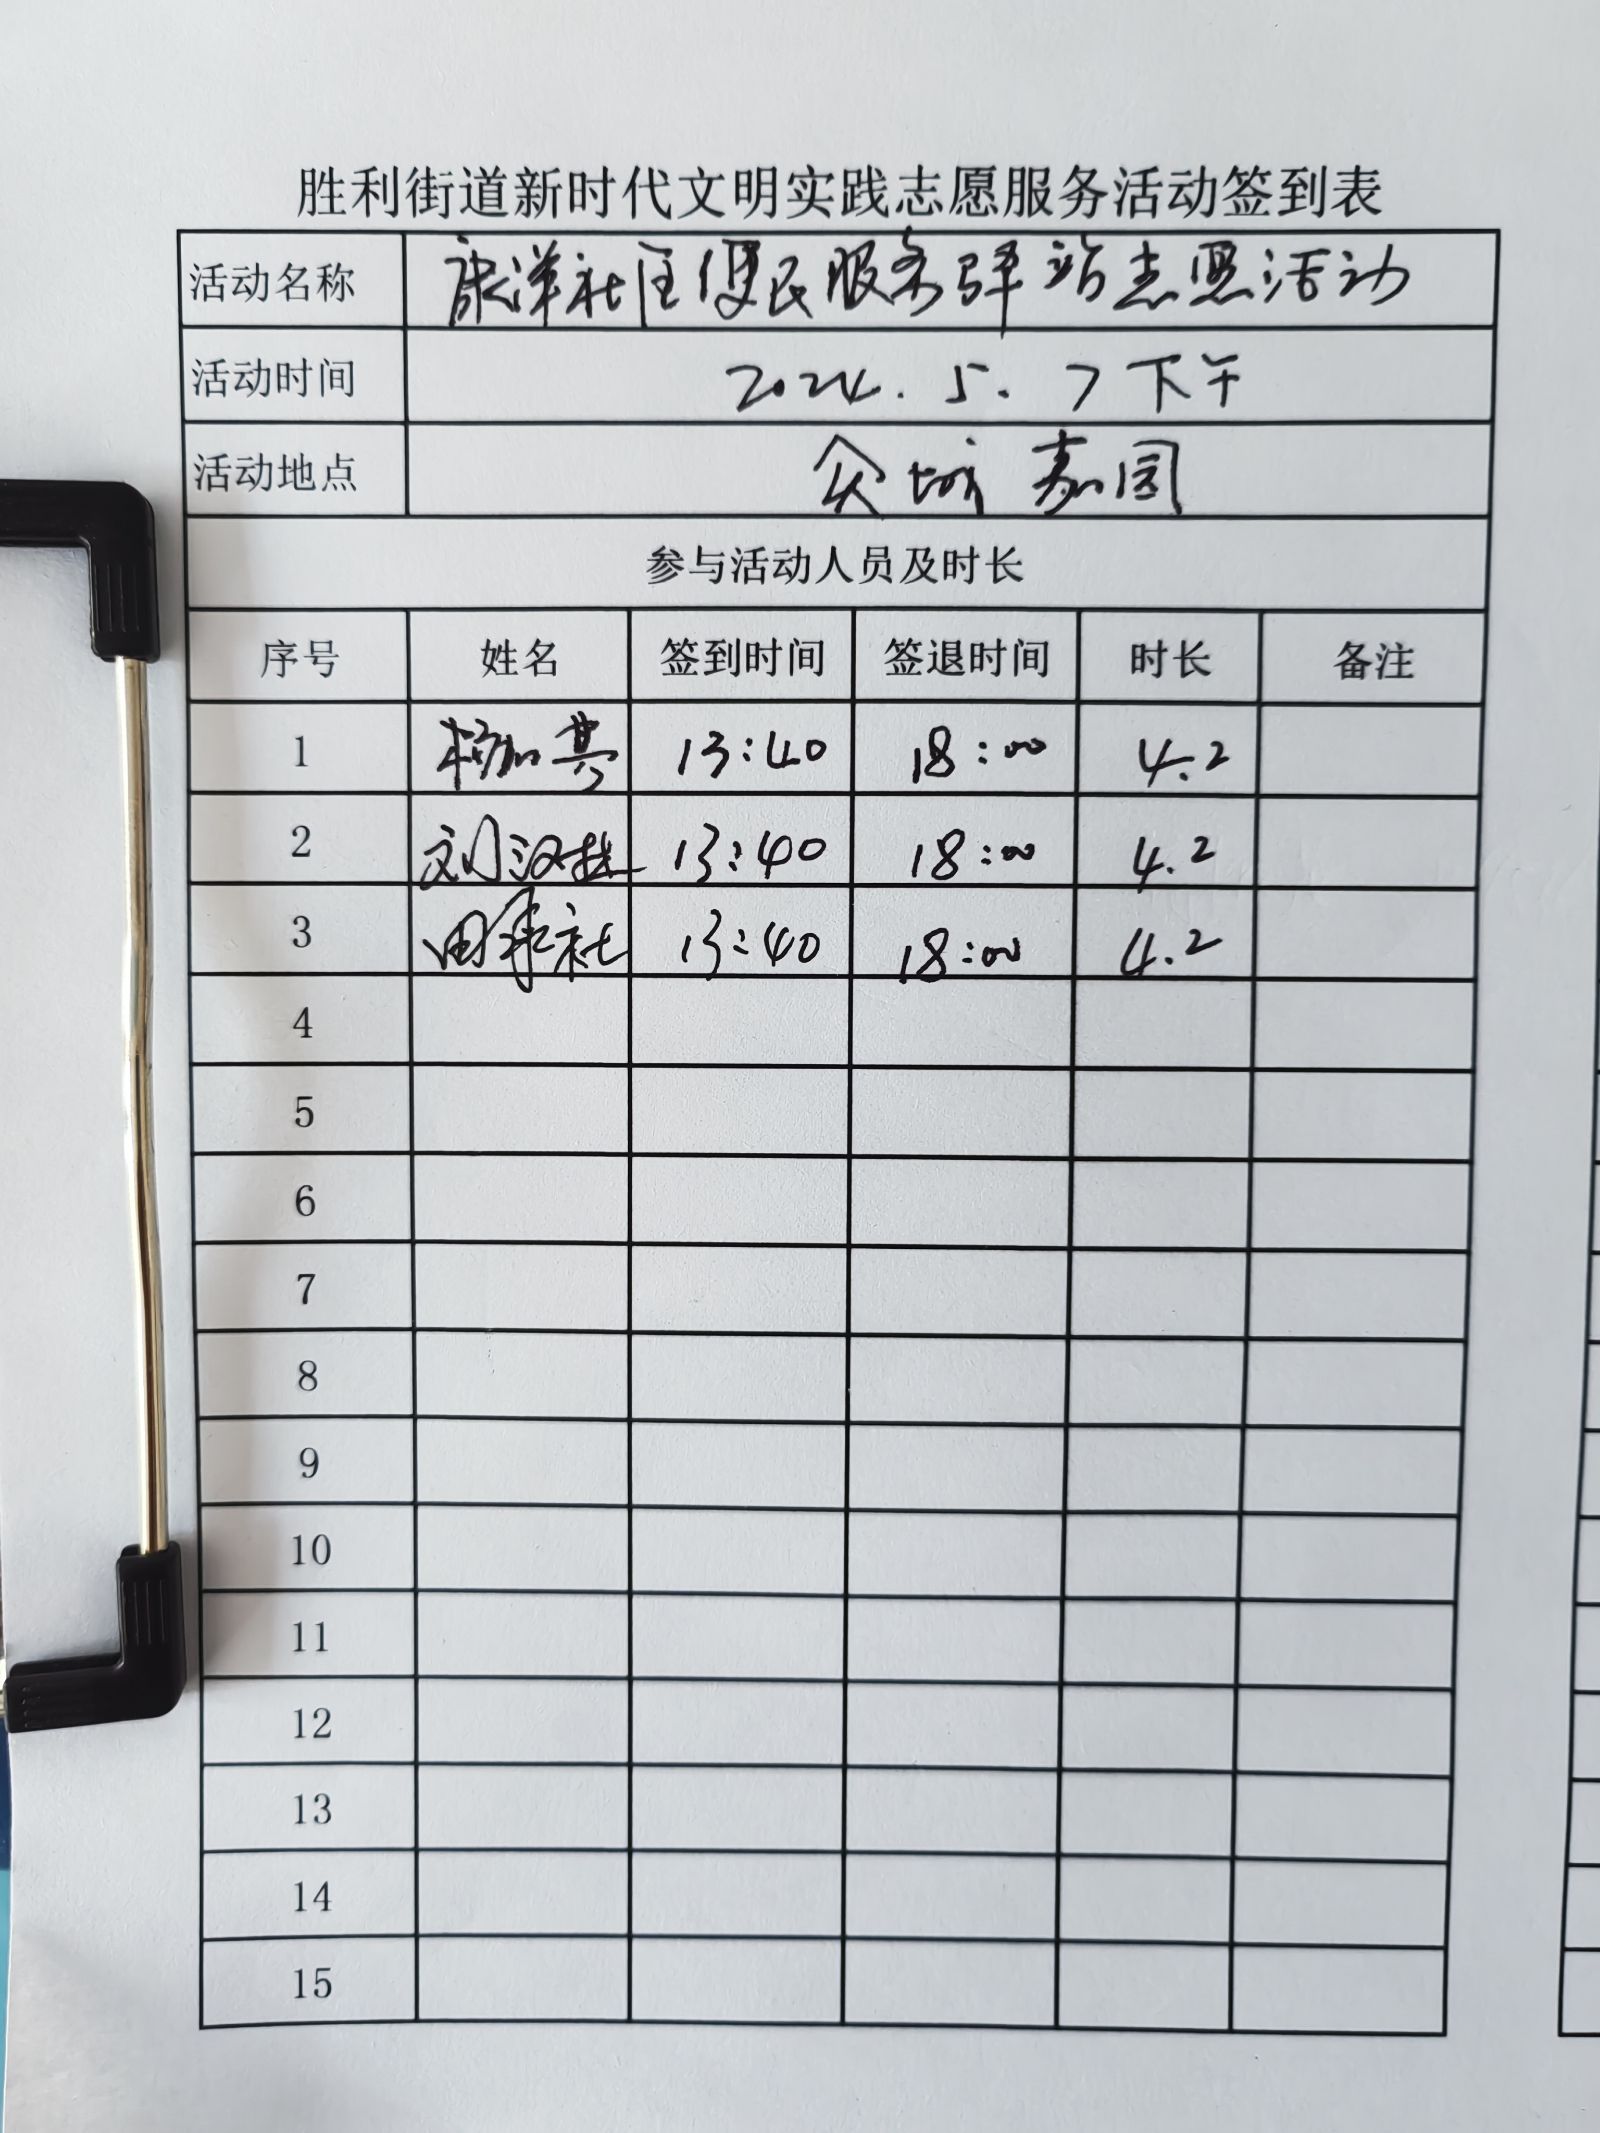 胜利街道新时代文明实践志愿服务活动签到表
活动名称 康洋社区便民服务驿站志愿活动
活动时间 2024.5.7下午
活动地点 众城嘉园
参与活动人员及时长
序号 姓名 签到时间 签退时间 时长 备注
1 13:40 18:00 4.2
2 刘汉 13:40 18:00 4.2
3 田 社 13:40 18:00 4.2
4
5
6
7
8
9
10
11
12
13
14
15